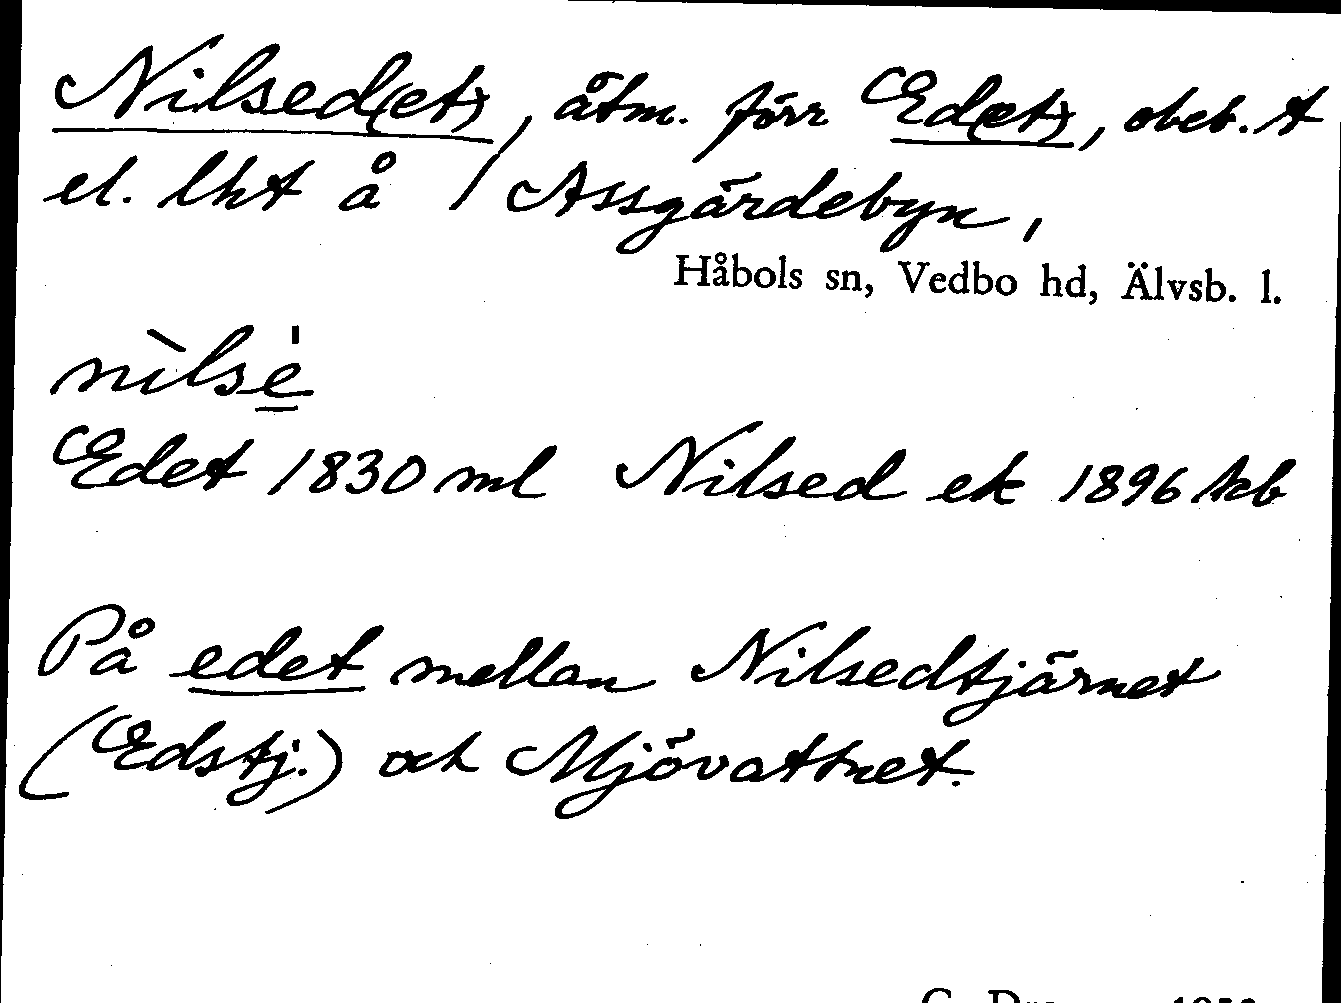 Nilsed(et), åtm. förr Ed(et), obeb. t
el. lht å / Assgärdebyn,
Håbols sn, Vedbo hd, Älvsb. l.
nìlsé
Edet 1830 ml Nilsed ek 1896 kb
På edet mellan Nilsedtjärnet
(Edstj.) och Mjövattnet.